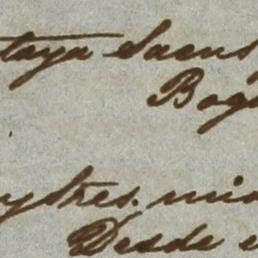 taya Saens
Bog
y Stres. mio
Desde e